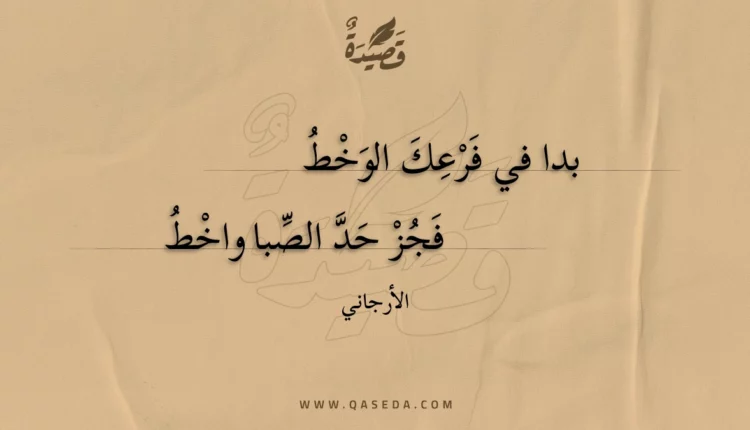 قَصِيدَةٌ
بدا في فَرْعِكَ الوَخْطُ
فَجُزْ حَدَّ الصِّبا واخْطُ
الأرجاني
WWW.QASEDA.COM